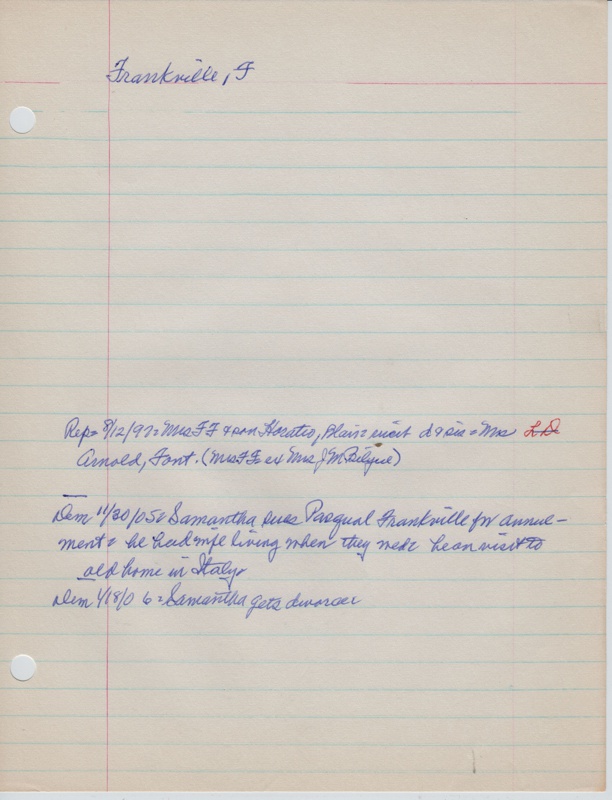 Frankville, F
Rep= 8/12/97= Mrs FF & son Horatio, Plain= visit d & sis = Mrs L D
Arnold, Font. (Mrs FF= ex Mrs J M Bilyue)
Dem 11/30/05= Samantha sues Pasqual Frankville for annul-
ment= he had wife living when they wed= he on visit to
old home in Italy.
Dem 4/18/06= Samantha gets divorce